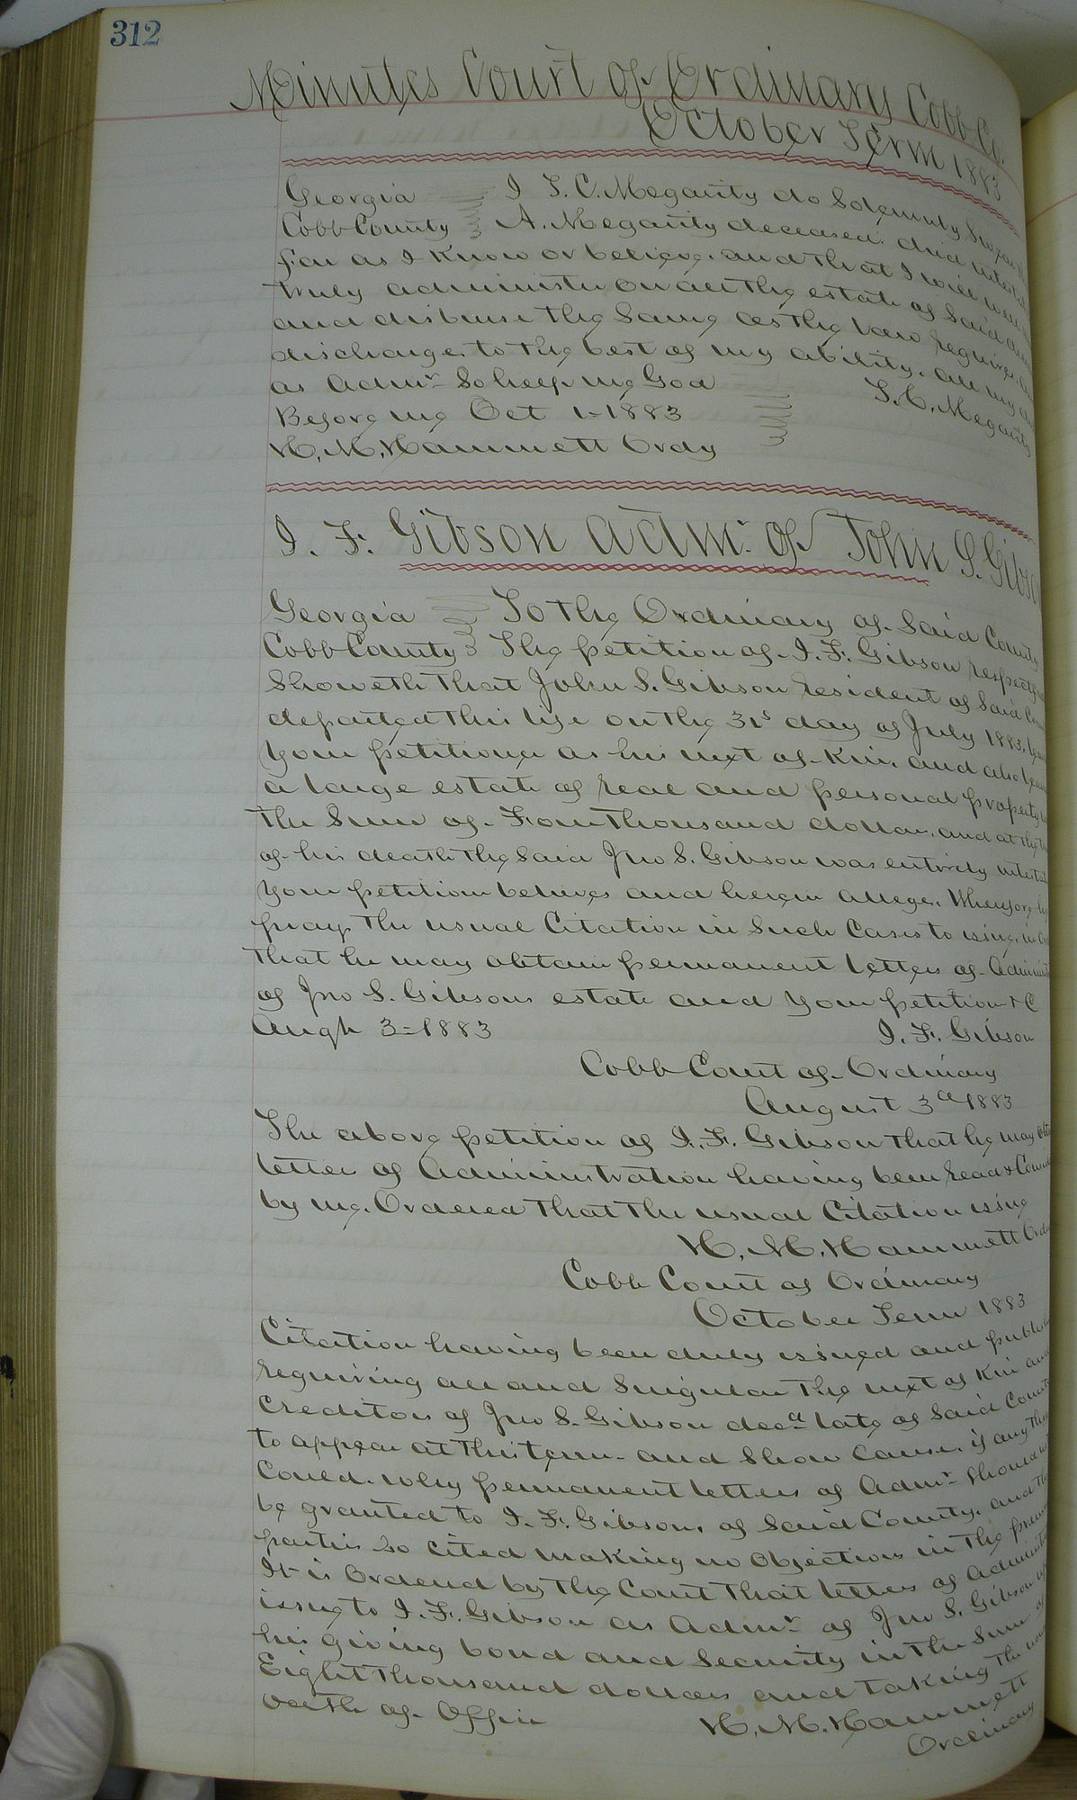 312
Minutes Court of Ordinary Cobb Co.
October Term 1883
Georgia I S. C. Megarity do Solemnly Swear
Cobb County A. Megarity deceased. died
far as I know or believe. and that I will
truly administer on all the estate of Said
and disburse the Same as the law requires.
discharge to the best of my ability. all my
as Admr So help me God S. C. Megarity
Before me Oct 1 - 1883
H. M. Hammett Ordy
I. F. Gibson Admr. of John S. Gibson
Georgia To the Ordinary of Said County
Cobb County The petition of I. F. Gibson
Showeth that John S. Gibson resident of Said
departed this life on the 31s day of July 1883.
Your petitioner as his next of Kin. and also
a large estate of real and personal property
the Sum of Four thousand dollars. and at the
of his death the Said Jno S. Gibson was entirely
Your petition believes and herein alleges. Wherefore
prays the usual Citation in Such Cases to issue.
that he may obtain permanent letters of
of Jno S. Gibsons estate and your petition &C
Augh 3 = 1883 I. F. Gibson
Cobb Court of Ordinary
August 3d 1883
The above petition of I. F. Gibson that he may
letters of Administration having been read &
by me. Ordered that the usual Citation issue
H. M. Hammett
Cobb Court of Ordinary
October Term 1883
Citation having been duly issued and
requiring all and Singular the next of Kin and
Creditors of Jno S. Gibson decd late of Said County
to appear at this term. and Show Cause. if any they
Could. why permanent letters of Admr Should
be granted to I. F. Gibson, of Said County. and the
parties so cited making no Objections in the
It is Ordered by the Court that letters of
issue to I. F. Gibson as Admr of Jno S. Gibson
his giving bond and Security in the Sum of
Eight thousand dollars and taking the
oath of Office H. M. Hammett
Ordinary